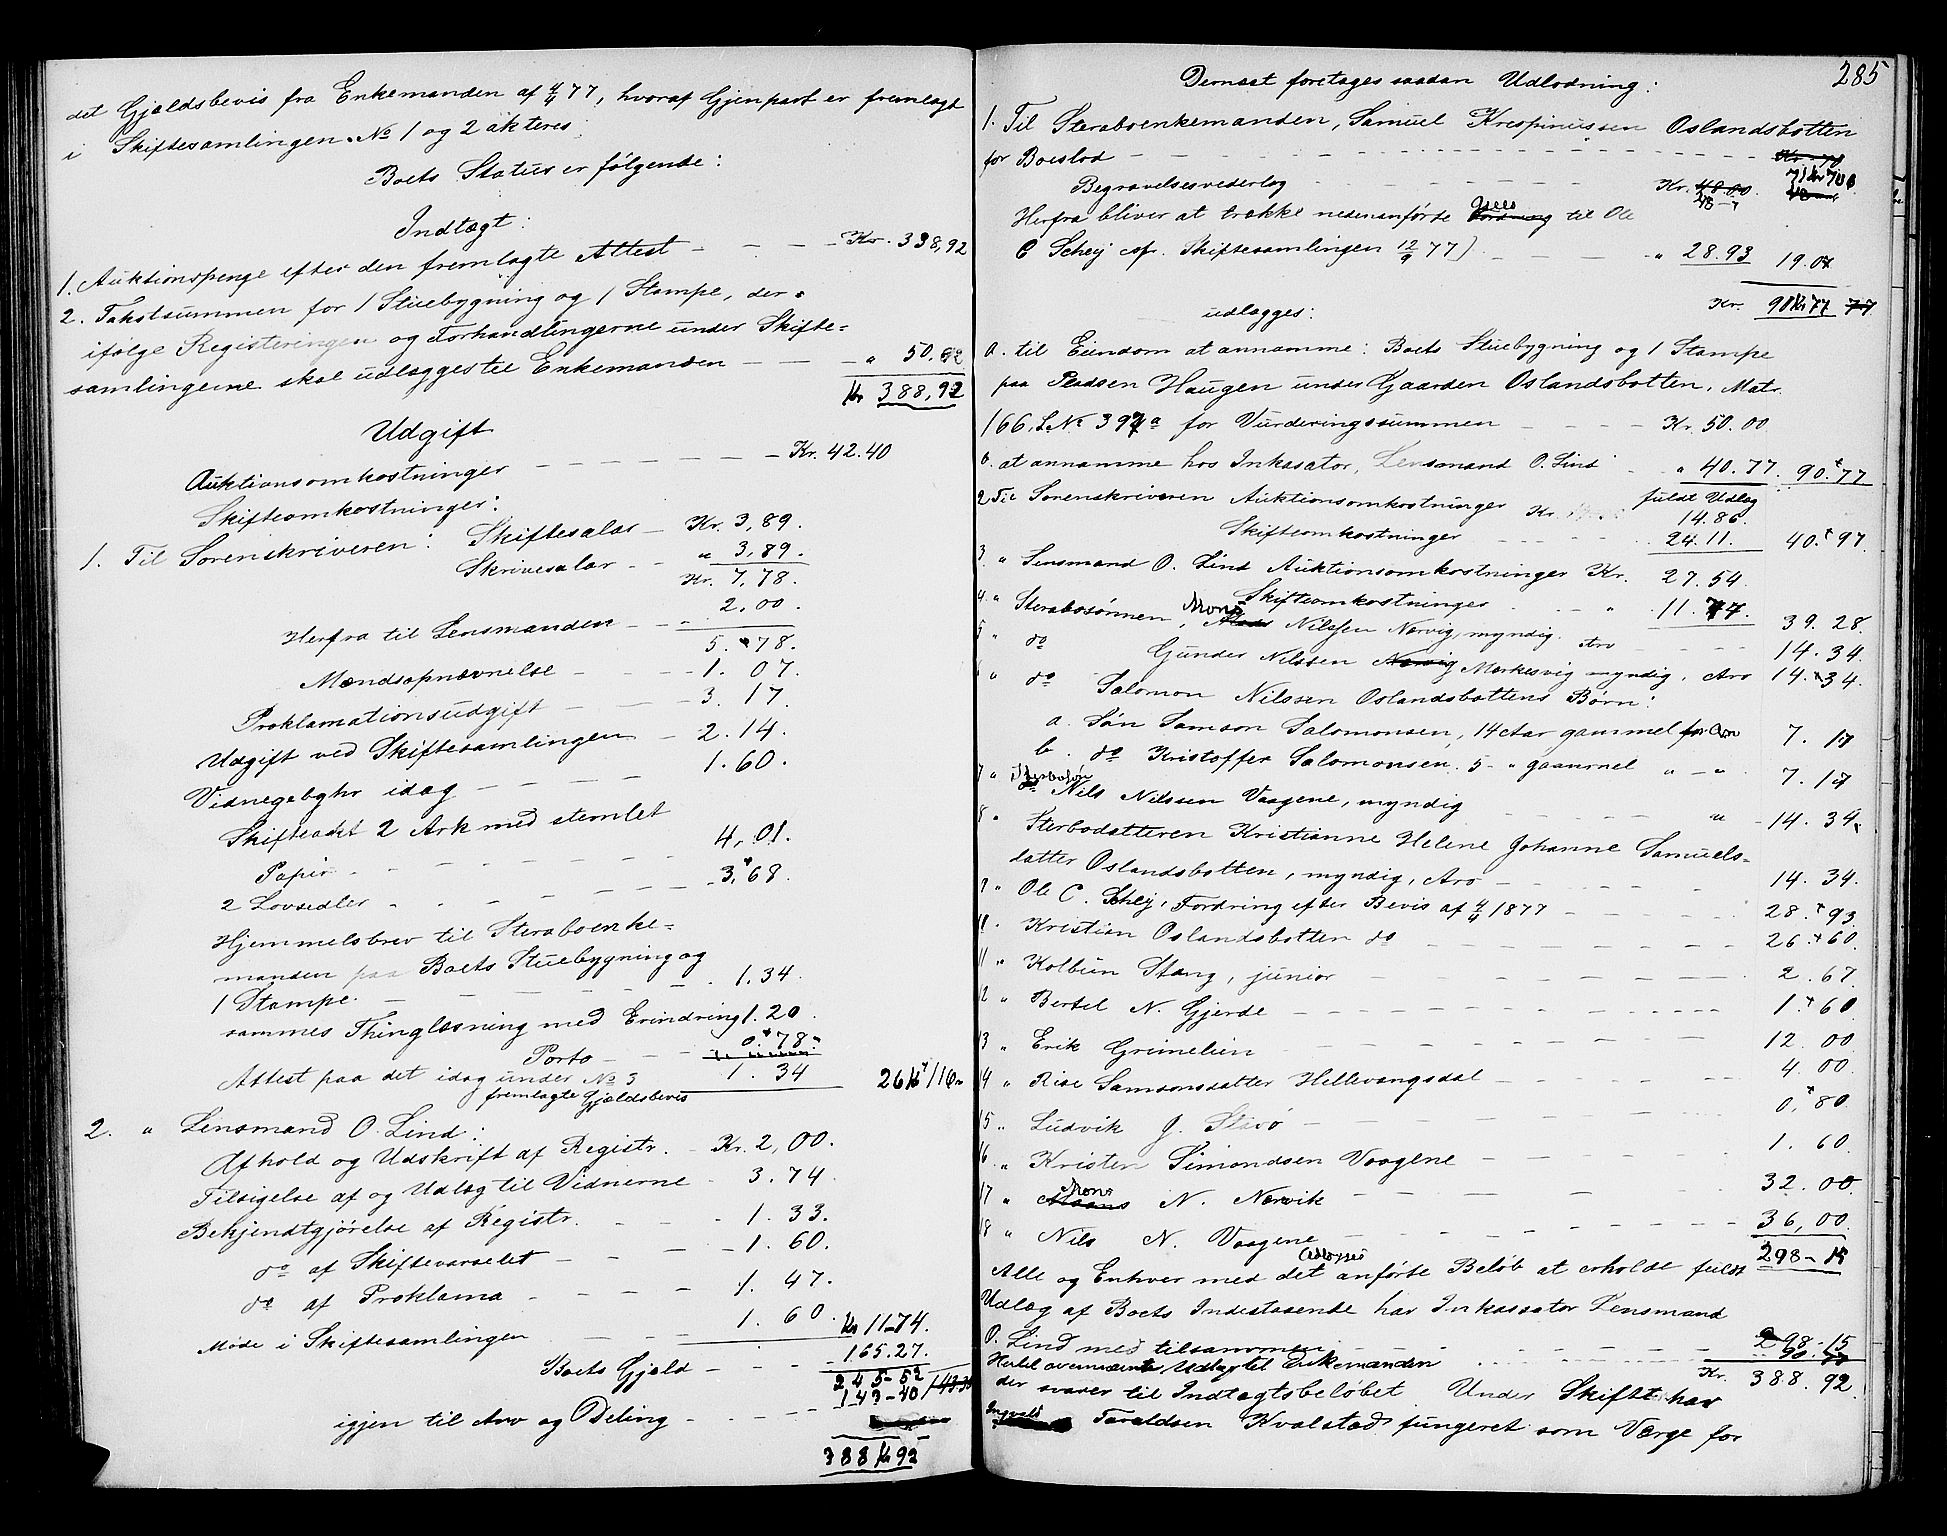 det Gjældsbevis fra Enkemanden af 4/4 77, hvoraf Gjenpart er fremlagt
i Skiftesamlingen. No 1 og 2 akteres.
Boets Status er følgende:
Indtægt:
1. Auktionspenge efter den fremlagte Attest - - - Kr. 338,92
2. Takstsummen for 1 Stuebygning og 1 Stampe, der
ifølge Registeringen og Forhandlingerne under Skifte=
samlingerne skal udlægges til Enkemanden - - - " 50.
Kr 388,92
Udgift
Auktionsomkostninger - - - - Kr. 42.40
Skifteomkostninger:
1. Til Sorenskriveren: Skiftesalar - Kr. 3,89.
Skrivesalar - - " 3,89.
Kr. 7,78.
Herfra til Lensmanden - - 2,00.
5. 78.
Mændsopnævnelse - - 1. 07.
Proklamationsudgift - - 3. 17.
Udgift ved Skiftesamlingen - 2. 14.
Vidnegebyhr idag - - - 1. 60.
Skifteakt 2 Ark med stemlet
Papir - - - 4. 01.
2 Lovsedler - - - 3. 68.
Hjemmelsbrev til Stervboenke=
manden paa Boets Stuebygning og
1 Stampe. - - - 1. 34.
sammes Thinglæsning med Erindring 1. 20.
Porto - - - 0. 78.
Attest paa det idag under No 3 1. 34
fremlagte Gjældsbevis
2. " Lensmand O. Lind:
Afhold og Udskrift af Registr. - Kr. 2,00.
Tilsigelse af og Udlæg til Vidnerne - 3. 74.
Bekjendtgjørelse af Registr. - - 1. 33.
do af Skiftevarselet - - - 1. 60.
do af Proklama - - - 1. 47.
Møde i Skiftesamlingen - - - 1. 60. Kr 11.74.
Boets Gjæld - - - 165.27.
245-52
igjen til Arv og Deling - - - 143-40
388 Kr 92
285
Dernæst foretages saadan Udlodning:
1. Til Stervboenkemanden, Samuel Krespinussen Oslandsbotten
for Boeslod - - - 71 Kr 70
Begravelsesvederlag - - - Kr. 48.00
Herfra bliver at trække nedenanførte Gjæld til Ole
C Schey cfr. Skiftesamlingen 12/9 77) - - - " 28.93 19.07
udlægges: Kr. 90 Kr 77
a. til Eiendom at annamme: Boets Stuebygning og 1 Stampe
paa Pladsen Haugen under Gaarden Oslandsbotten, Matr.
166, L.No 397a for Vurderingssummen - - - Kr. 50.00
b. at annamme hos Inkasator, Lensmand O. Lind - " 40.77. 90.77
2 Til Sorenskriveren Auktionsomkostninger Kr. fuldt Udlæg 14.86.
Skifteomkostninger - - - 24.11. 40. 97.
3. " Lensmand O. Lind Auktionsomkostninger Kr. 27.54.
Skifteomkostninger - - - " 11.74. 39. 28.
4. " Stervbosønnen, Mons Nilssen Nærvig, myndig. Arv - - - 14. 34.
5 " do Gunder Nilssen Mærkesvig myndig, Arv 14. 34.
6 " do Salomon Nilssen Oslandsbottens Børn:
a. Søn Samson Salomonsen, 14 Aar gammel Arv 7. 17
b. do Kristoffer Salomonsen. 5 - " gammel " - " 7. 17
7 " Stervbosøn Nils Nilssen Vaagene, myndig - - - " - 14. 34.
8 " Stervbodatteren Kristianne Helene Johanne Samuels=
datter Oslandsbotten, myndig, Arv - - - 14. 34.
9 " Ole C. Schey, Fordring efter Bevis af 4/4 1877 - - - 28. 93.
10. Kristian Oslandsbotten do - - - 26. 60.
11 " Kolbun Stang, junior - - - 2. 67.
12 " Bertel N. Gjerde - - - 1. 60.
13 " Erik Grimelien - - - 12. 00
14 " Rise Samsonsdatter Hellevangsdal - - - 4. 00.
15 " Ludvik J. Stivø - - - 0. 80.
16 " Kristen Simondsen Vaagene - - - 1. 60.
17 " Mons N. Nærvik - - - 32. 00.
18 " Nils N. Vaagene - - - 36,00.
298-15
Alle og Enhver med det anførte Beløb at erholde fuldt
Udlæg af Boets Indestaaende hos Inkassator Lensmand
O. Lind med tilsammen - - - 298.15
Hertil ovennævnte Udlæg til Enkemanden - - -
der svarer til Indtægtsbeløbet Kr. 388. 92.
Under Skiftet har
Ingvald Taraldsen Kvalstad fungeret som Værge for